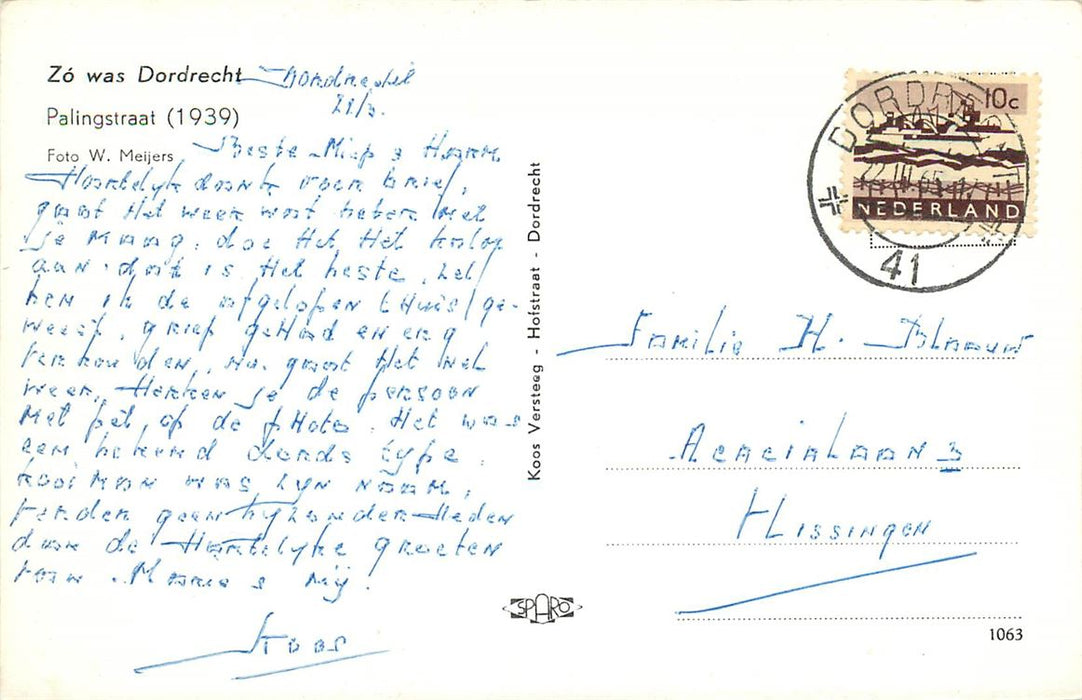 Zó was Dordrecht
Palingstraat (1939)
Foto W. Meijers
Dordrecht
21/3.
Beste Miep &
Hartelijk dank voor brief,
gaat het weer wat beter met
je maag, doe het, het kalm
aan. dat is het beste,
ben ik de afgelopen thuis ge-
weest, griep gehad en erg
verkouden, nu gaat het wel
weer, Herken je de persoon
met pet, op de photo. Het was
een bekend dords type.
Kooiman was zijn naam,
verder geen byzonderheden
dan de Hartelyke groeten
van Marie & my!
Koos
Koos Versteeg - Hofstraat - Dordrecht
SPARO
10c
NEDERLAND
DORDRECHT
22.III.65
41
Familie H. Blaauw
Acacialaan 3
Vlissingen
1063